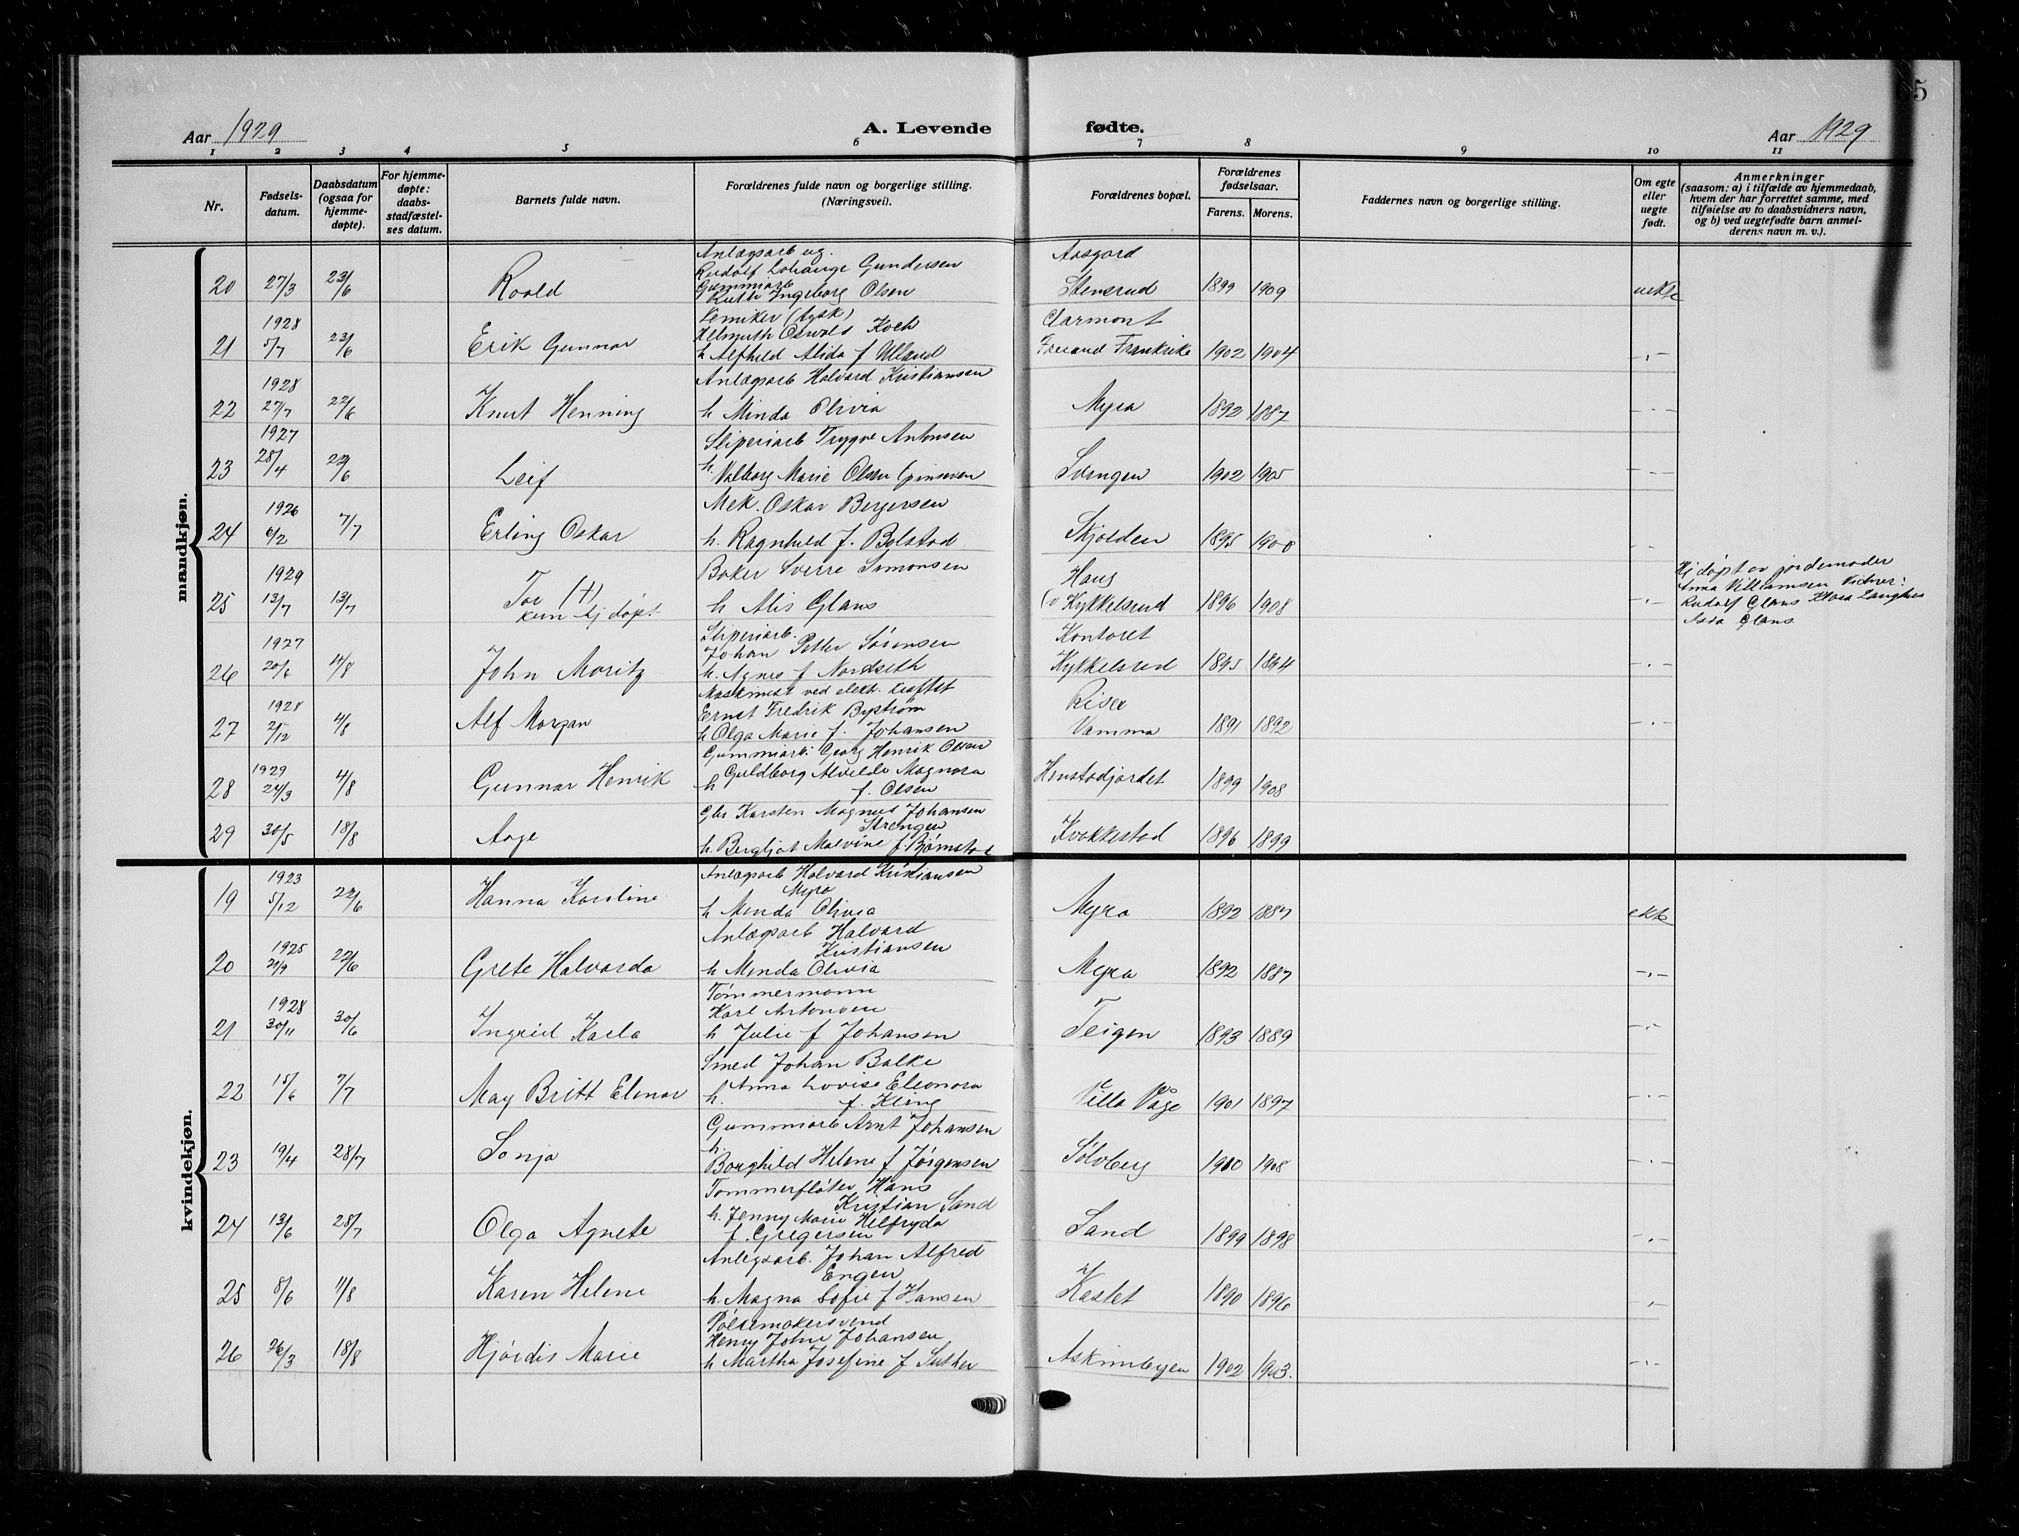 5
Aar 1929
A. Levende
fødte.
Aar 1929
1 2 3 4 5 6 7 8 9 10 11
Nr.
Fødselsdatum.
Daabsdatum (ogsaa for hjemmedøpte).
For hjemmedøpte: daabsstadfæstelses datum.
Barnets fulde navn.
Forældrenes fulde navn og borgerlige stilling.
(Næringsvei).
Forældrenes bopæl.
Forældrenes fødselsaar.
Farens. Morens.
Faddernes navn og borgerlige stilling.
Om egte eller uegte født.
Anmerkninger
(saasom: a) i tilfælde av hjemmedaab,
hvem der har forrettet samme, med
tilføielse av to daabsvidners navn,
og b) ved uegtefødte barn anmelderens navn m. v.).
mandkjøn.
Anlægsarb ug.
Rudolf Lohange Gundersen
Gummiarb
20 27/3 23/6 Roald Ruth Ingeborg Olsen Aasgard Stensrud 1899 1909 uekte
1928
Kemiker (tysk)
Helmuth Oswald Koch
21 5/7 23/6 Erik Gunnar h Alfhild Alida f Ulland Clarmont Ferrand Frankrike 1902 1904 -"-
1928
Anlægsarb Halvard Kristiansen
22 27/7 22/6 Knut Henning h Minda Olivia Myra 1892 1887 -"-
1927
Sliperiarb Trygve Antonsen
23 28/4 22/6 Leif h. Valborg Marie Olsen Svengen 1902 1905 -"-
1926
Mek. Oskar Bergersen
24 6/2 7/7 Erling Oskar h. Ragnhild f. Bolstad Skjolden 1895 1900 -"-
1929
Baker Sverre Simonsen
25 13/7 13/7 Tor (†) kun hj døpt. h Alis Glans Haug (v Kykkelsrud 1896 1908 -"-
Hj døpt av jordemoder
Anna Villiamsen Vidner:
Rudolf Glans Klara
Glans
1927
Sliperiarb.
Johan Petter Sørensen
26 20/6 14/8 John Moritz h. Agnes f Nordseth Kontoret Kykkelsrud 1895 1894 -"-
1928
Maskmest ved elekt. kraftst
Ernst Fredrik Byström
27 25/12 4/8 Alf Morgan h Olga Marie f. Johansen Riser Vamma 1891 1892 -"-
1929
Gummiarb. Georg Henrik Olsen
28 24/3 4/8 Gunnar Henrik h Guldborg Alvilde Magnora f. Olsen Henstadjordet 1899 1908
Gbr Karsten Magnus Johansen
Strengen
29 30/5 18/8 Aage h. Bergljot Malvine f. Bjørnstad Kvakkestad 1896 1899
kvindekjøn.
1923
Anlægsarb Halvard Kristiansen
Myra
19 5/12 22/6 Hanna Karoline h Menda Olivia Myra 1892 1887 ekte
1925
Anlægsarb Halvard
Kristiansen
20 21/9 22/6 Grete Halvarda h Menda Olivia Myra 1892 1887 -"-
1928
Tømmermann
Karl Antonsen
21 30/11 30/6 Ingrid Karla h Julie f Johansen Teigen 1893 1889 -"-
Smed Johan Balke
22 15/6 7/7 May Britt Elenor h. Anna Lovise Eleonora f. Kling Villa Våge 1901 1897 -"-
Gummiarb Arnt Johansen
23 19/4 28/7 Sonja h. Borghild Helene f Jørgensen Sølvberg 1900 1908 -"-
Tømmerfløter Hans
Kristian Sand
24 13/6 28/7 Olga Agnete h. Jenny Marie Helfryda f. Gregersen Sand 1899 1898 -"-
Anlegsarb. Johan Alfred
Engen
25 8/6 11/8 Karen Helene h. Magna Sofie f Hansen Kastet 1890 1896 -"-
Pølsemakersvend
Henry John Johansen
26 26/3 18/8 Hjørdis Marie h Martha Josefine f Suther Askimbyen 1902 1903. -"-